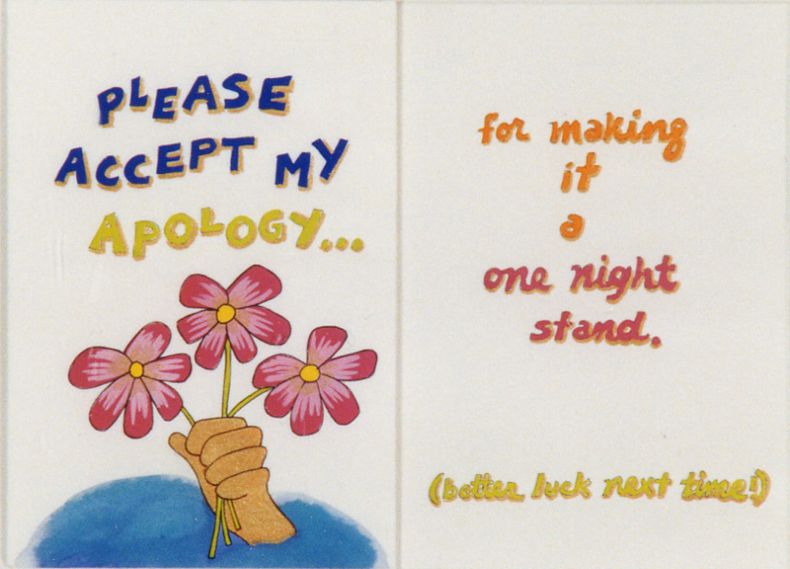 PLEASE
ACCEPT MY
APOLOGY...
for making
it
a
one night
stand.
(better luck next time!)